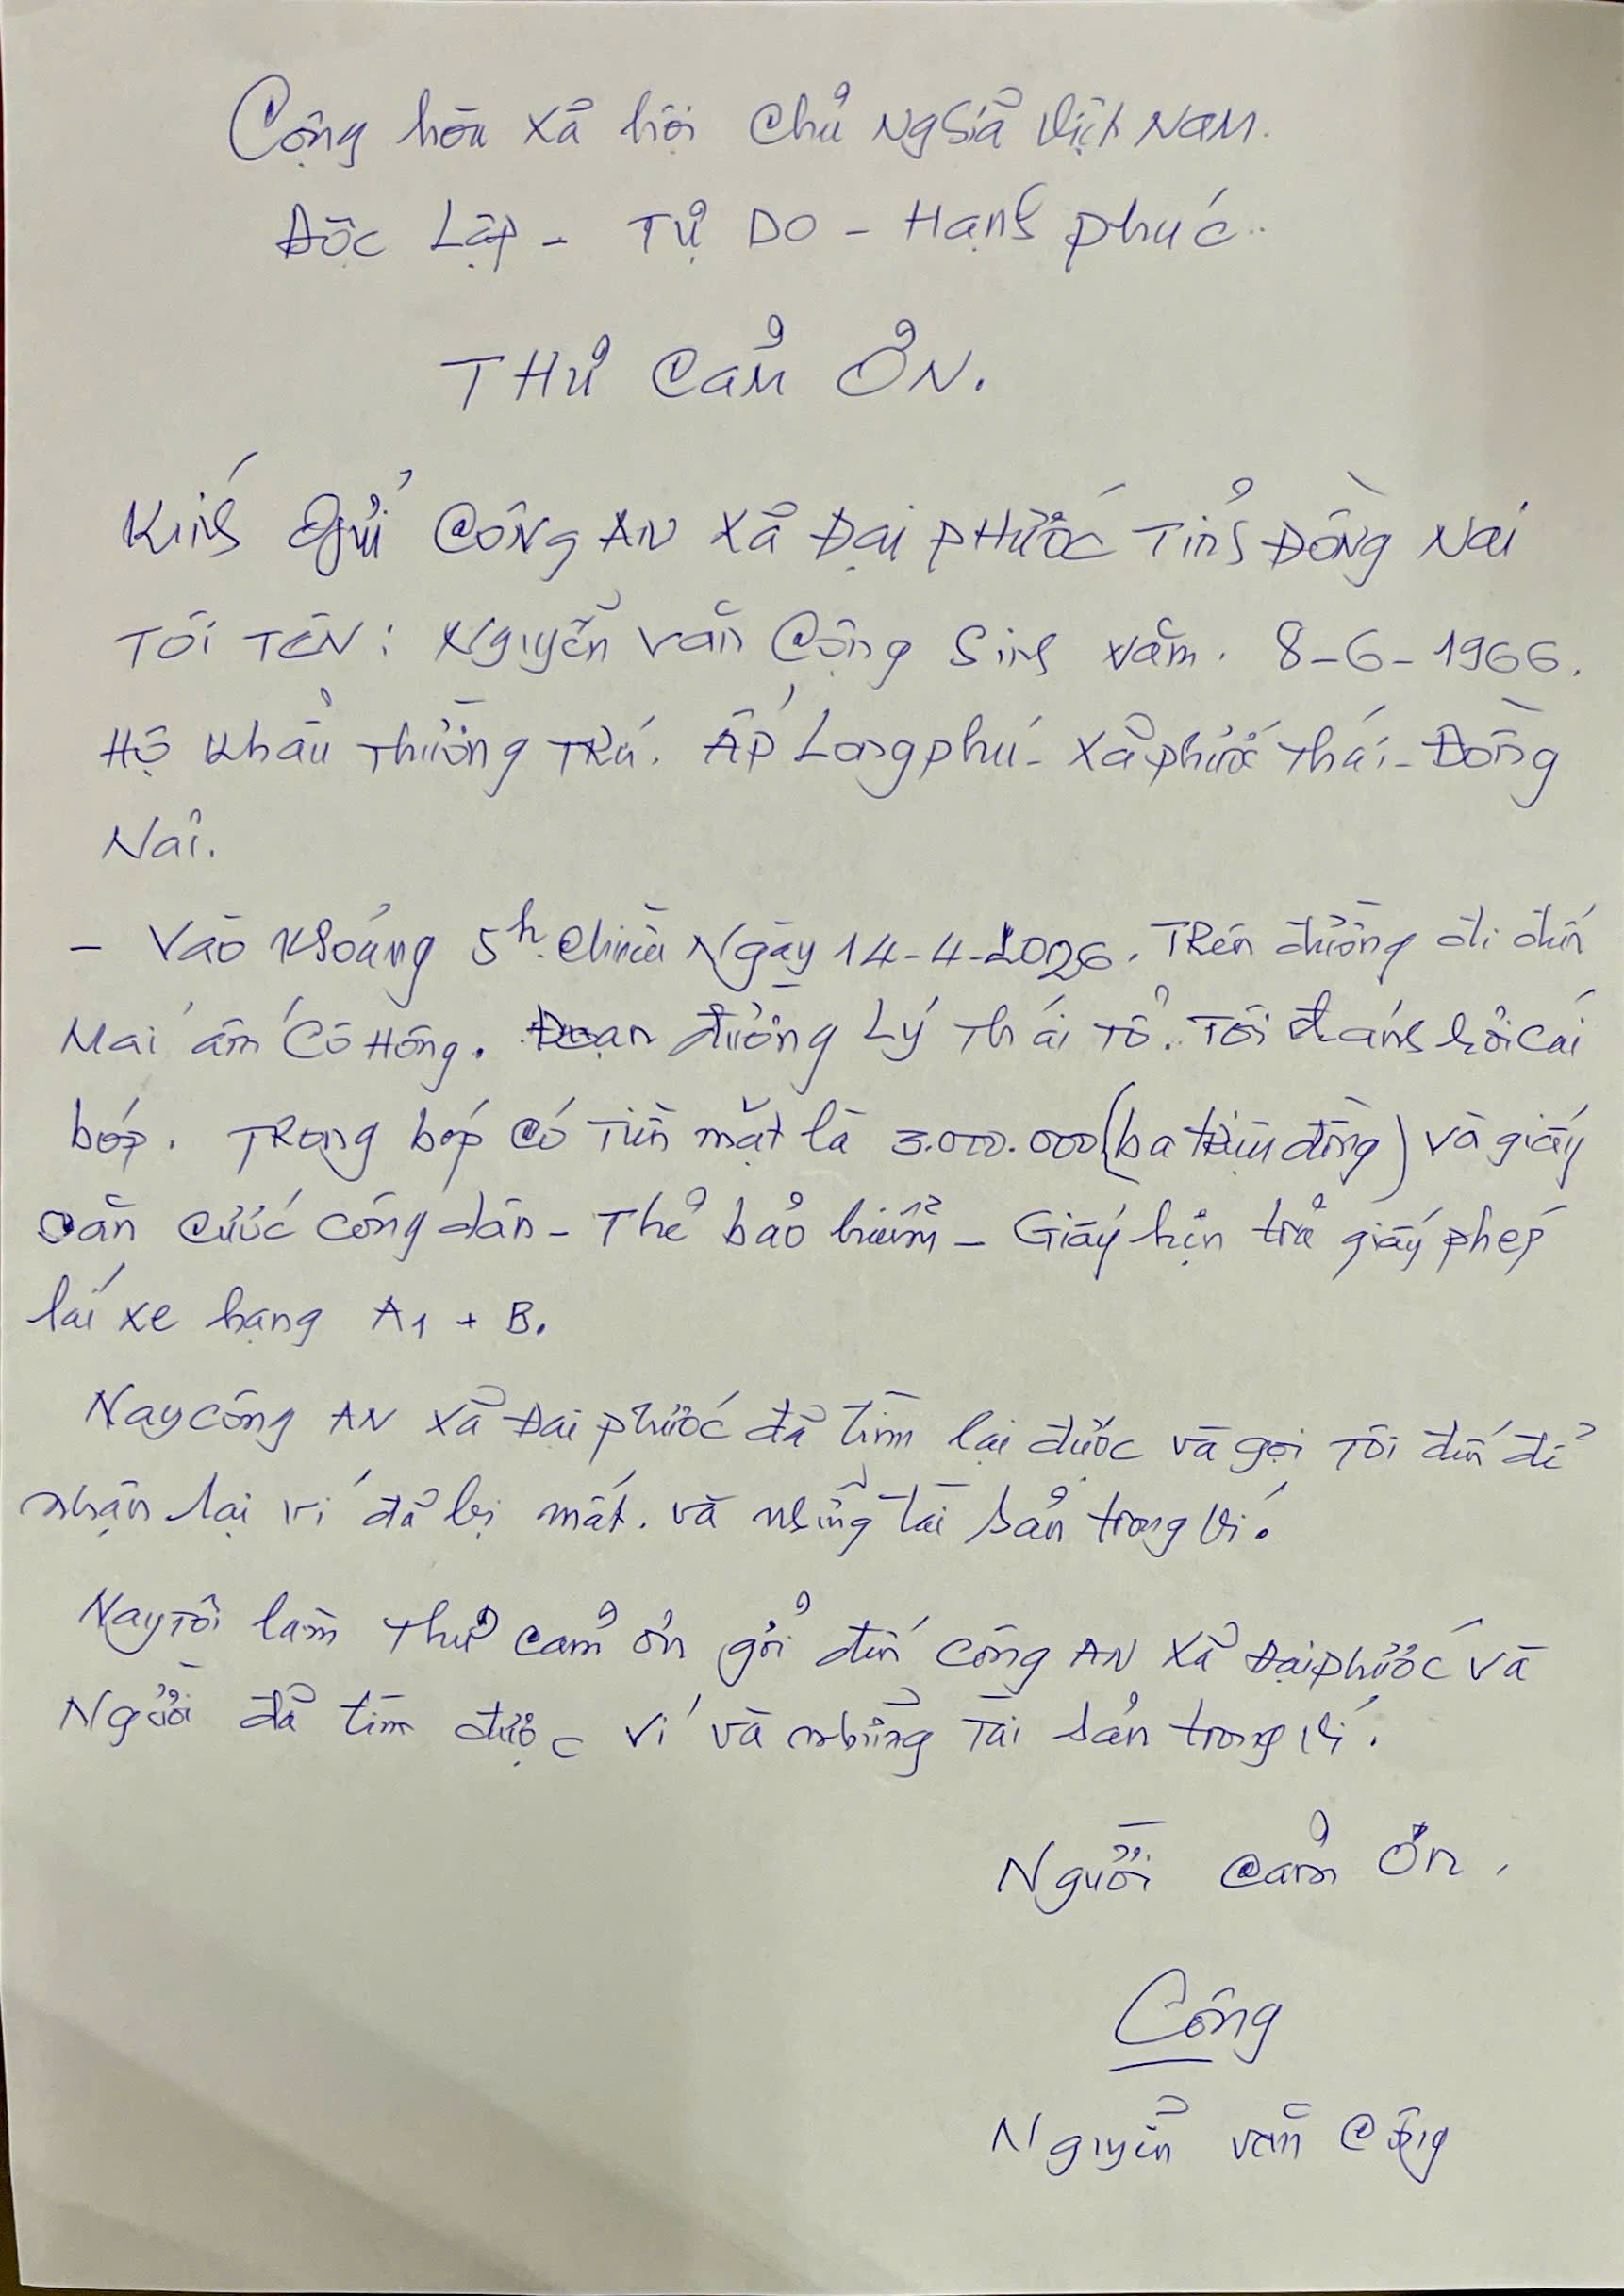 Cộng hòa xã hội chủ nghĩa Việt Nam.
Độc Lập - Tự Do - Hạnh phúc
THƯ CẢM ƠN.
Kính Gửi CÔNG AN Xã Đại PHƯỚC Tỉnh ĐỒNG Nai
TÔI TÊN: Nguyễn Văn Cộng Sinh Năm. 8-6-1966.
Hộ khẩu Thường TRú. Ấp Long phú - Xã phước Thái - Đồng
Nai.
- Vào khoảng 5h chiều Ngày 14-4-2026. TRên đường đi đến
Mái ấm Cô Hồng. Đoạn đường Lý Thái Tổ. Tôi đánh rơi cái
bóp. TRong bóp có Tiền mặt là 3.000.000 (ba triệu đồng) và giấy
căn cước công dân - Thẻ bảo hiểm - Giấy hẹn trả giấy phép
lái xe hạng A1 + B.
Nay công AN xã Đại phước đã tìm lại được và gọi Tôi đến để
nhận lại ví đã bị mất. và những tài sản trong ví.
Nay Tôi làm Thư cảm ơn gởi đến công AN xã Đại phước và
Người đã tìm được ví và những Tài sản trong ví.
Người cảm ơn.
Công
Nguyễn văn Cộng